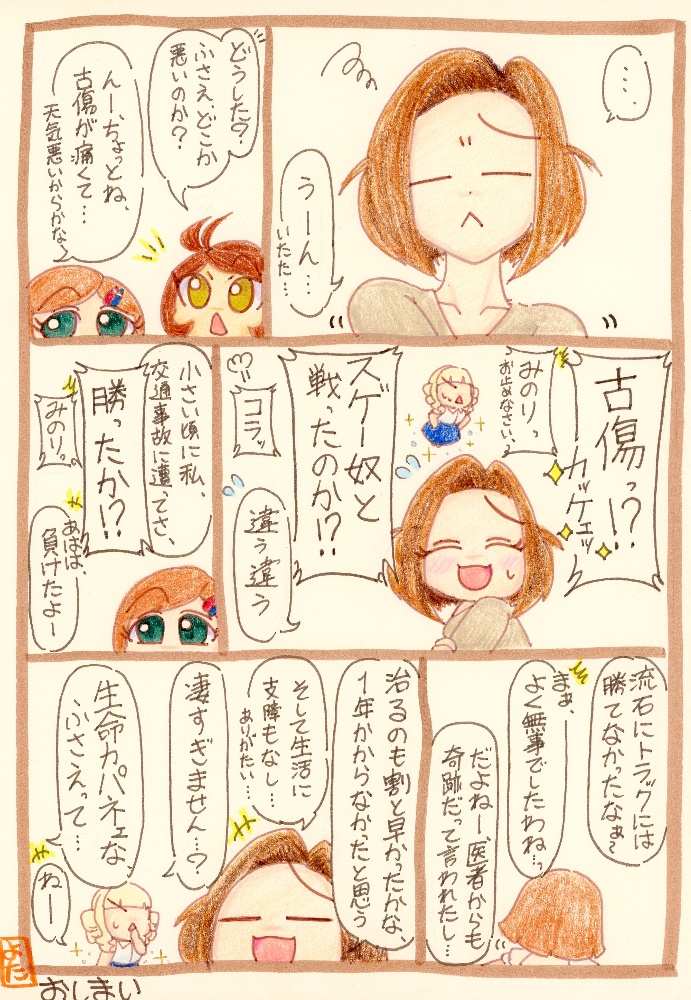 …。
うーん…
いたた…
どうした？
ふさえ、どこか
悪いのか？
んー、ちょっとね、
古傷が痛くて…
天気悪いからかな
古傷っ!?
カッケェッ
みのりっ
お止めなさい、
スゲー奴と
戦ったのか!?
コラッ
違う違う
小さい頃に私、
交通事故に遭ってさ、
勝ったか!?
みのりっ
あはは、
負けたよー
流石にトラックには
勝てなかったなぁ～
まぁ、
よく無事でしたわね…っ
だよねー、医者からも
奇跡だって言われたし…
治るのも割と早かったかな、
1年かからなかったと思う
そして生活に
支障もなし…
ありがたい…
凄すぎません…？
生命力パネェな
ふさえって…
ねー
よた
おしまい